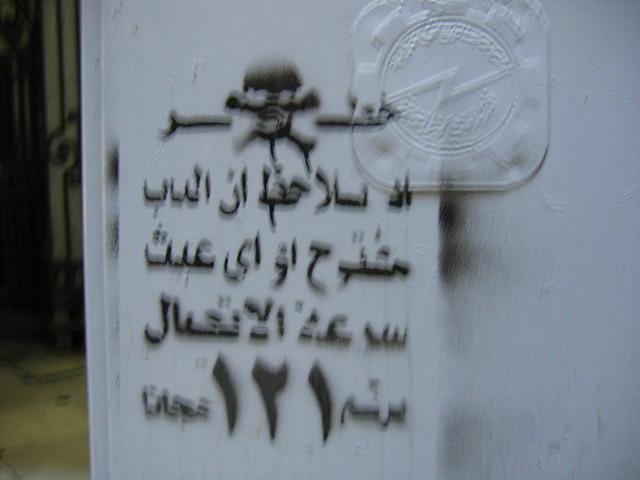 خطر
اذا تلاحظ ان الباب
مفتوح او اى عبث
سرعة الاتصال
برقم ١٢١ مجانا